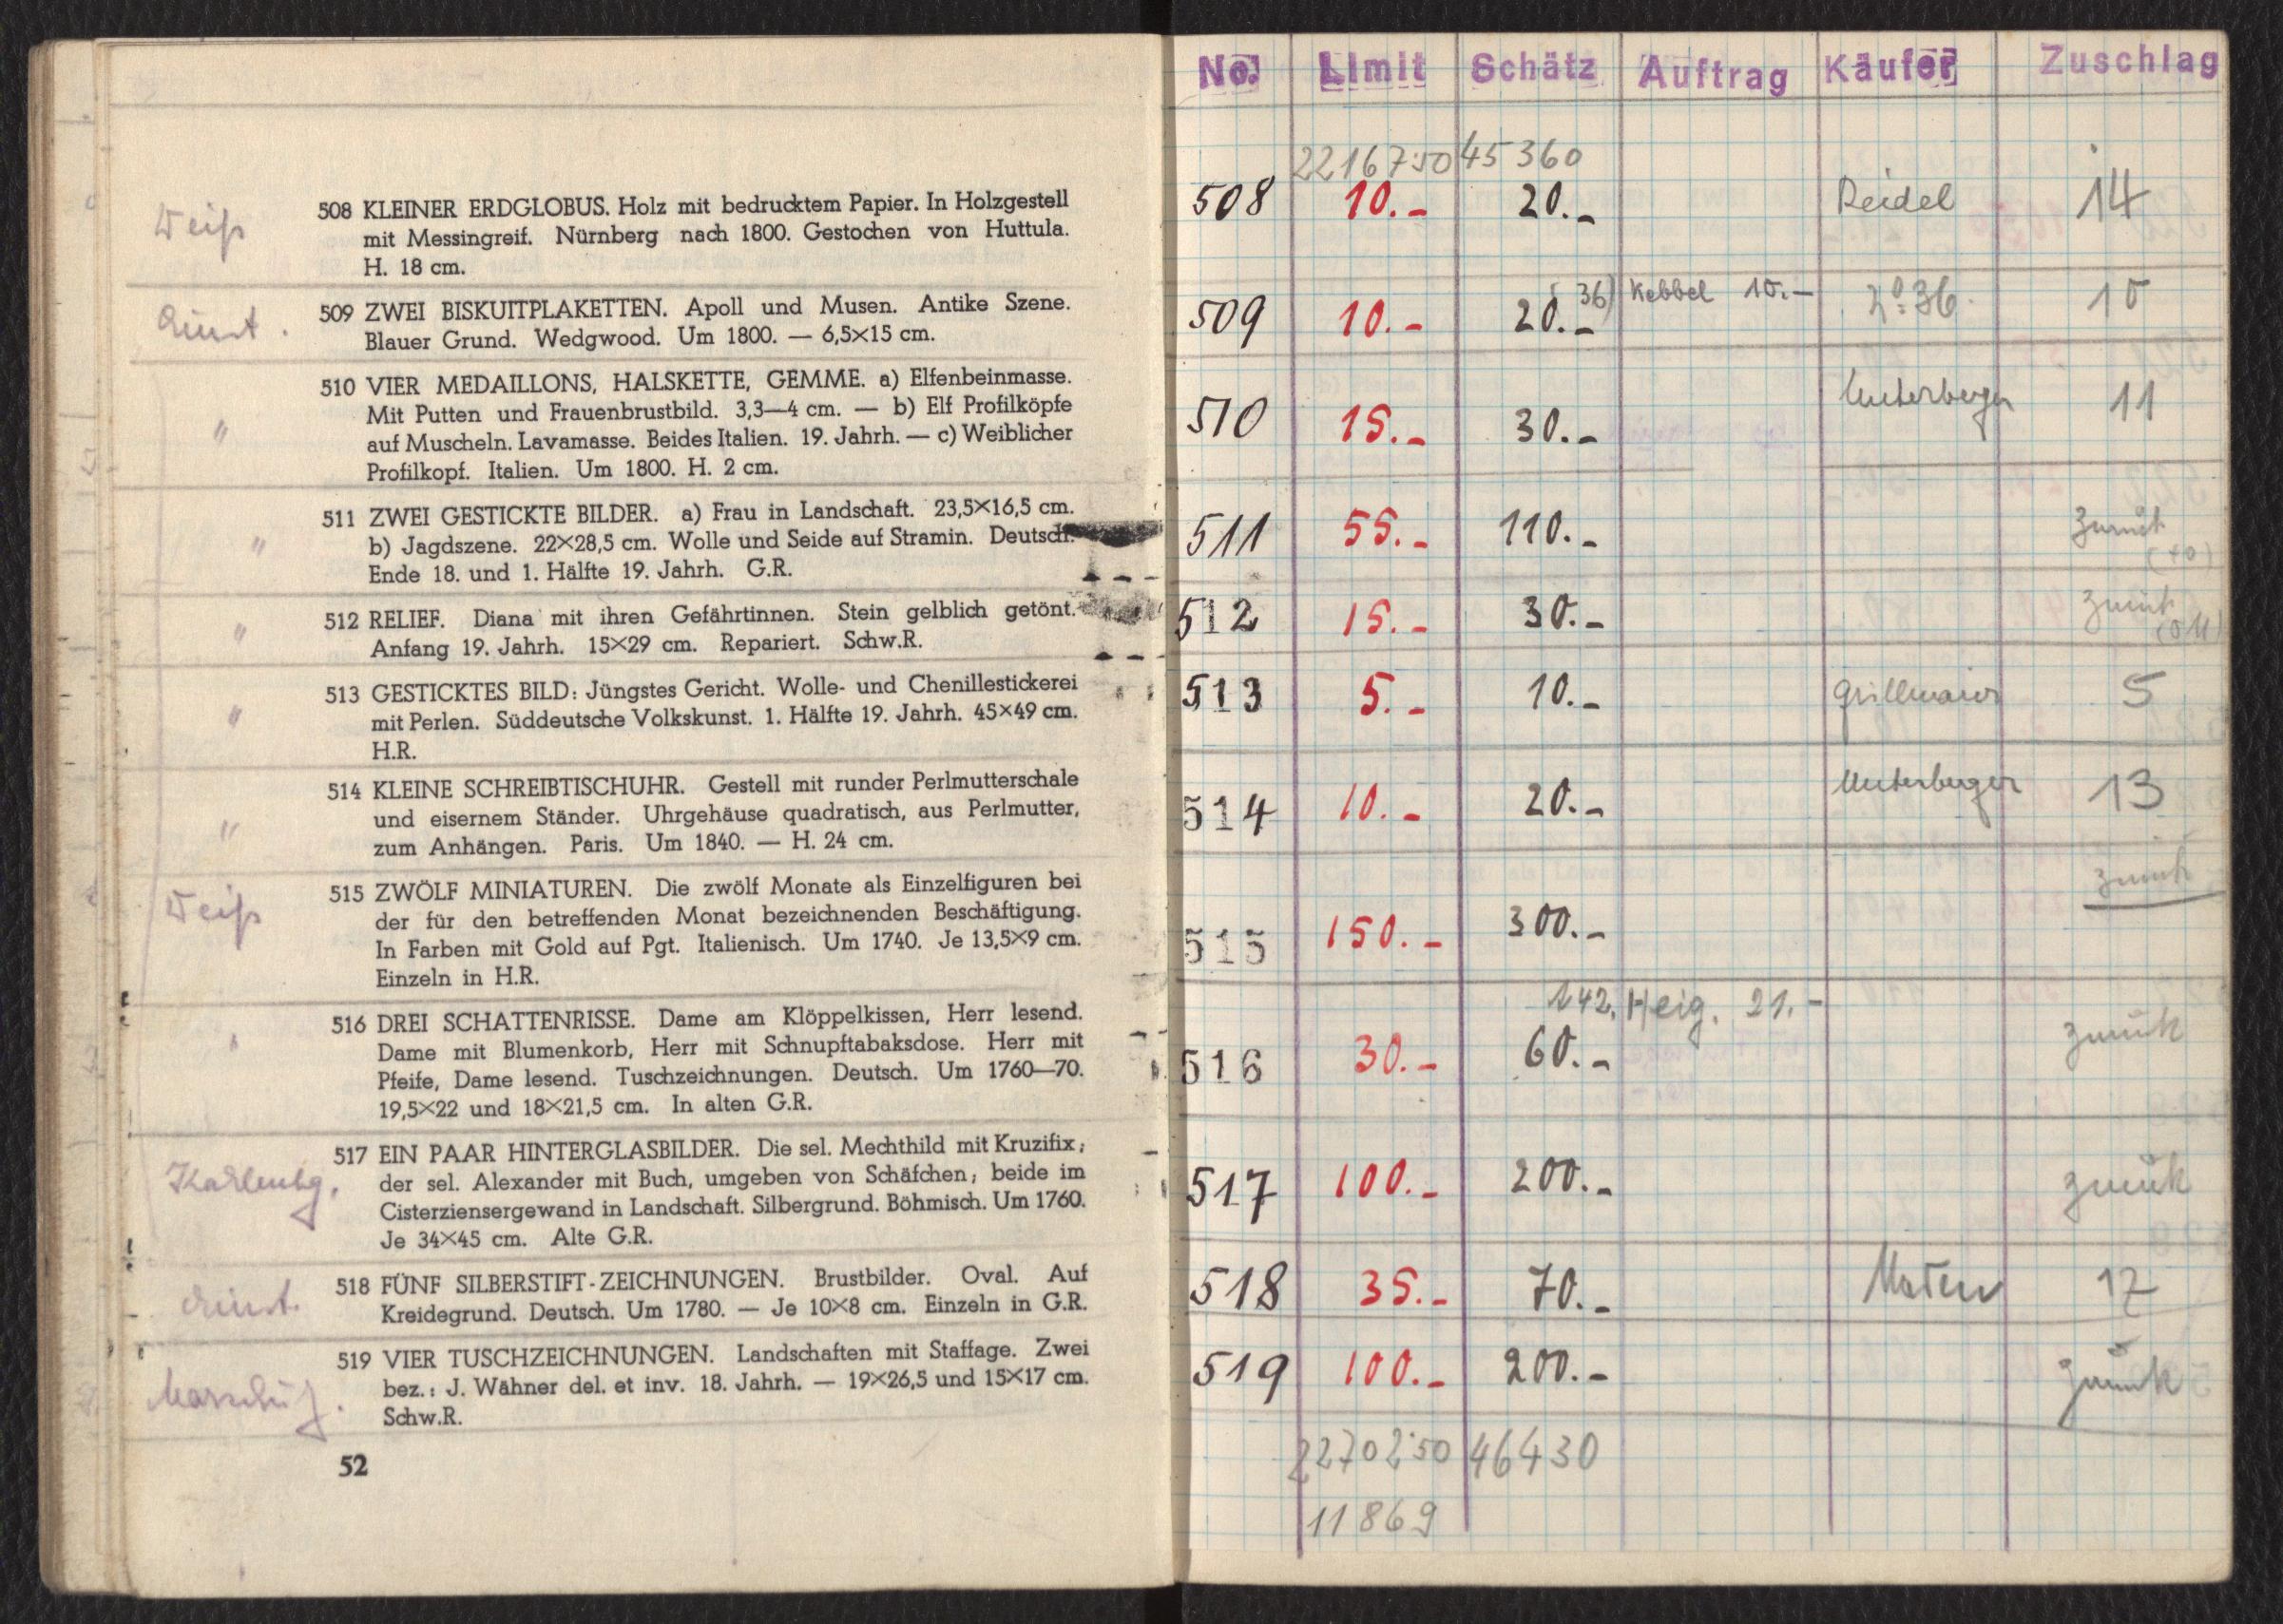 Weiß
508 KLEINER ERDGLOBUS. Holz mit bedrucktem Papier. In Holzgestell
mit Messingreif. Nürnberg nach 1800. Gestochen von Huttula.
H. 18 cm.
509 ZWEI BISKUITPLAKETTEN. Apoll und Musen. Antike Szene.
Blauer Grund. Wedgwood. Um 1800. — 6,5×15 cm.
"
510 VIER MEDAILLONS, HALSKETTE, GEMME. a) Elfenbeinmasse.
Mit Putten und Frauenbrustbild. 3,3—4 cm. — b) Elf Profilköpfe
auf Muscheln. Lavamasse. Beides Italien. 19. Jahrh. — c) Weiblicher
Profilkopf. Italien. Um 1800. H. 2 cm.
"
511 ZWEI GESTICKTE BILDER. a) Frau in Landschaft. 23,5×16,5 cm.
b) Jagdszene. 22×28,5 cm. Wolle und Seide auf Stramin. Deutsch.
Ende 18. und 1. Hälfte 19. Jahrh. G.R.
"
512 RELIEF. Diana mit ihren Gefährtinnen. Stein gelblich getönt.
Anfang 19. Jahrh. 15×29 cm. Repariert. Schw.R.
"
513 GESTICKTES BILD: Jüngstes Gericht. Wolle- und Chenillestickerei
mit Perlen. Süddeutsche Volkskunst. 1. Hälfte 19. Jahrh. 45×49 cm.
H.R.
"
514 KLEINE SCHREIBTISCHUHR. Gestell mit runder Perlmutterschale
und eisernem Ständer. Uhrgehäuse quadratisch, aus Perlmutter,
zum Anhängen. Paris. Um 1840. — H. 24 cm.
Weiß
515 ZWÖLF MINIATUREN. Die zwölf Monate als Einzelfiguren bei
der für den betreffenden Monat bezeichnenden Beschäftigung.
In Farben mit Gold auf Pgt. Italienisch. Um 1740. Je 13,5×9 cm.
Einzeln in H.R.
516 DREI SCHATTENRISSE. Dame am Klöppelkissen, Herr lesend.
Dame mit Blumenkorb, Herr mit Schnupftabaksdose. Herr mit
Pfeife, Dame lesend. Tuschzeichnungen. Deutsch. Um 1760—70.
19,5×22 und 18×21,5 cm. In alten G.R.
517 EIN PAAR HINTERGLASBILDER. Die sel. Mechthild mit Kruzifix;
der sel. Alexander mit Buch, umgeben von Schäfchen; beide im
Cisterziensergewand in Landschaft. Silbergrund. Böhmisch. Um 1760.
Je 34×45 cm. Alte G.R.
518 FÜNF SILBERSTIFT-ZEICHNUNGEN. Brustbilder. Oval. Auf
Kreidegrund. Deutsch. Um 1780. — Je 10×8 cm. Einzeln in G.R.
519 VIER TUSCHZEICHNUNGEN. Landschaften mit Staffage. Zwei
bez.: J. Wähner del. et inv. 18. Jahrh. — 19×26,5 und 15×17 cm.
Schw.R.
52
No. Limit Schätz Auftrag Käufer Zuschlag
22167.50 45360
508 10.- 20.- Reidel 14
509 10.- 20.- 36) Kebbel 10.- No 36 10
510 15.- 30.- Unterberger 11
511 55.- 110.- zurück
512 15.- 30.- zurück
513 5.- 10.- Grillmaier 5
514 10.- 20.- Unterberger 13
515 150.- 300.- zurück
142. Heig. 21.-
516 30.- 60.- zurück
517 100.- 200.- zurück
518 35.- 70.- 17
519 100.- 200.- zurück
22702.50 46430
11869